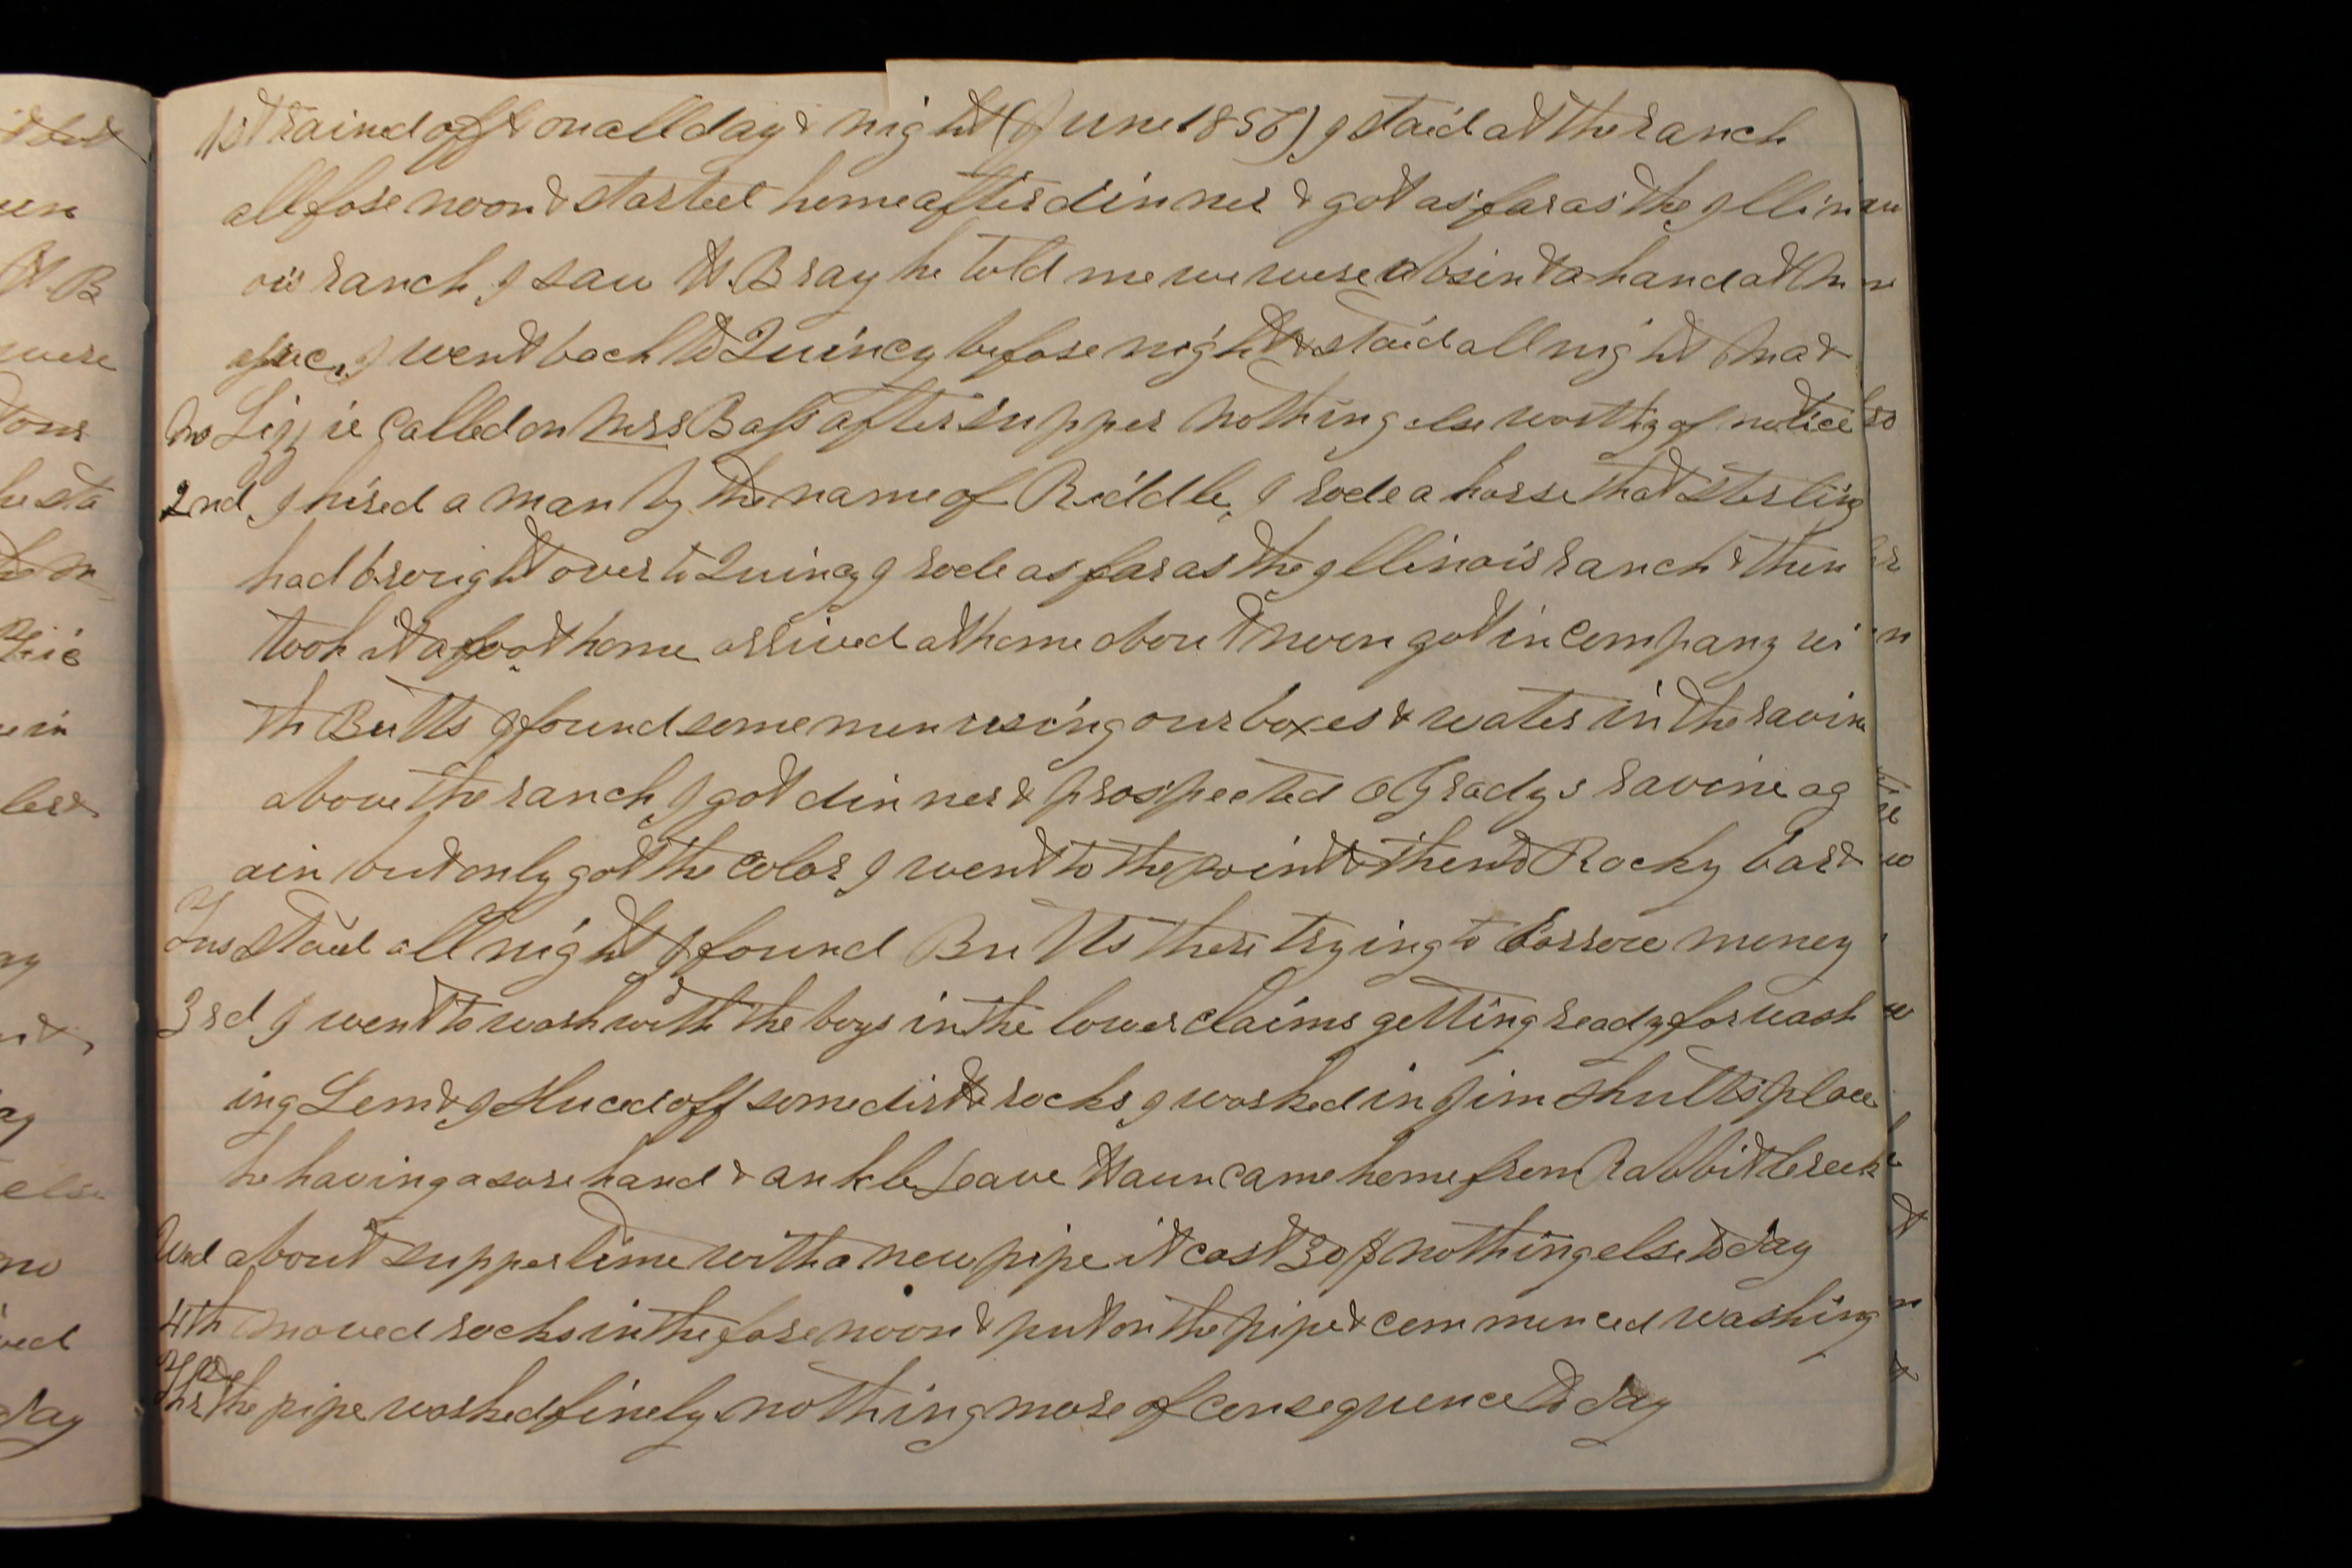 1st rained off & on all day & night (June 1856) I staid at the ranch
all fore noon & started home after dinner & got as far as the Illin
ois ranch, I saw W. Bray he told me we were absent a hand at
I went back to Quincy before night & staid all night &
Lizzie called on Mrs Bass after supper nothing else worthy of notice
2nd I hired a man by the name of Riddle, I rode a horse that Sterling
had brought over to Quincy I rode as far as the Illinois ranch & then
took it afoot home arrived at home about noon got in company wi
th Butts I found some men using our boxes & water in the ravine
above the ranch, I got dinner & prospected O Gradys ravine ag
ain but only got the color I went to the point & then to Rocky bar &
Tus staid all night I found Butts there trying to borrow money
3rd I went to work with the boys in the lower claims getting ready for wash
ing Lem & I sluced off some dirt & rocks I worked in Jim Shults place
he having a sore hand & ankle, came home from Rabbit Creek
Wed about supper time with a new pipe it cost 30 $ nothing else to day
4th moved rocks in the fore noon & put on the pipe & commenced washing
Thr the pipe worked finely nothing more of consequence to day